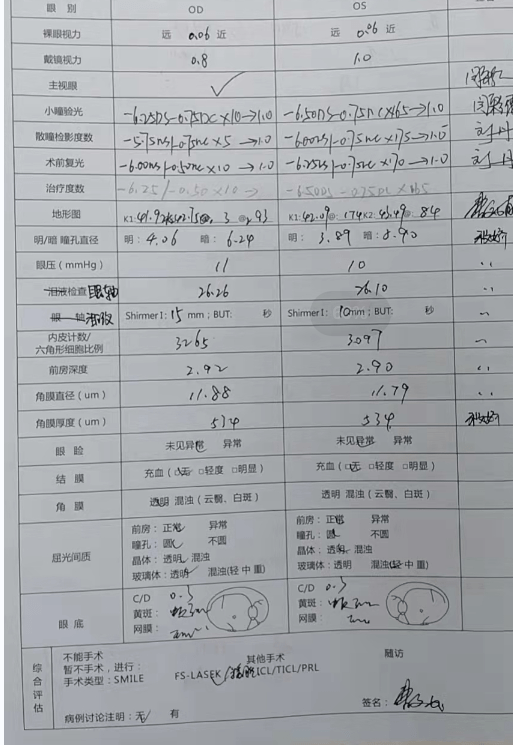 眼 别 OD OS
裸眼视力 远 0.06 近 远 0.06 近
戴镜视力 0.8 1.0
主视眼 ✓
小瞳验光 -6.25DS-0.75DC×10→1.0 -6.50DS-0.75DC×165→1.0
散瞳检影度数 -5.75DS/-0.75DC×5→1.0 -6.00DS/-0.75DC×175→1.0
术前复光 -6.00DS/-0.50DC×10→1.0 -6.25DS/-0.75DC×170→1.0
治疗度数 -6.25/-0.50×10→ -6.50DS-0.75DC×165
地形图 K1: 41.92@ 3 @ 93 K1: 42.09@ 174 K2: 43.49@ 84
明/暗 瞳孔直径 明: 4.06 暗: 6.24 明: 3.89 暗: 5.90
眼压（mmHg） 11 10
泪液检查 眼轴 26.26 26.10
眼 轴 泪液 Shirmer I: 15 mm; BUT: 秒 Shirmer I: 10 mm; BUT: 秒
内皮计数/
六角形细胞比例 3265 3097
前房深度 2.92 2.90
角膜直径（um） 11.88 11.79
角膜厚度（um） 534 534
眼 睑 未见异常 异常 未见异常 异常
结 膜 充血（□无 □轻度 □明显） 充血（□无 □轻度 □明显）
角 膜 透明 混浊（云翳、白斑） 透明 混浊（云翳、白斑）
屈光间质
前房：正常 异常 前房：正常 异常
瞳孔：圆 不圆 瞳孔：圆 不圆
晶体：透明 混浊 晶体：透明 混浊
玻璃体：透明 混浊(轻 中 重) 玻璃体：透明 混浊(轻 中 重)
眼 底
C/D 0.3 C/D 0.3
黄斑： 黄斑：
网膜： 网膜：
综合评估
不能手术 其他手术 随访
暂不手术，进行：
手术类型：SMILE FS-LASEK ICL/TICL/PRL
签名：
病例讨论注明：无 有